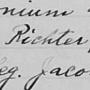 nium
Richter,
eg. Jaco